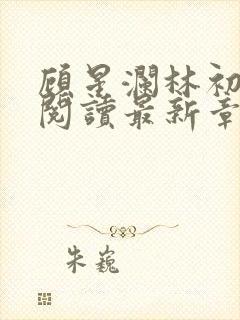 顾星澜林初
閱讀最新章
朱巍